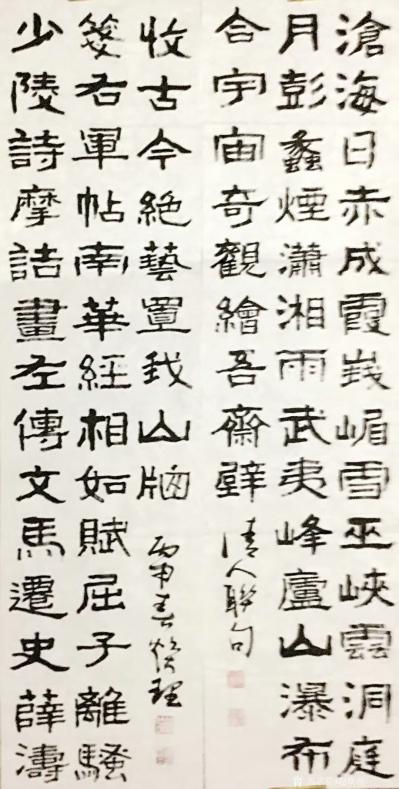 滄海日赤成霞峨嵋雪巫峽雲洞庭
月彭蠡煙瀟湘雨武夷峰廬山瀑布
合宇宙奇觀繪吾齋壁
清人聯句
少陵詩摩詰畫左傳文馬遷史薛濤
箋右軍帖南華經相如賦屈子離騷
收古今絕藝置我山牕
丙申春